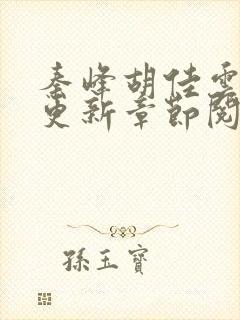 秦峰胡佳雲
更新章節閱
孫玉寶